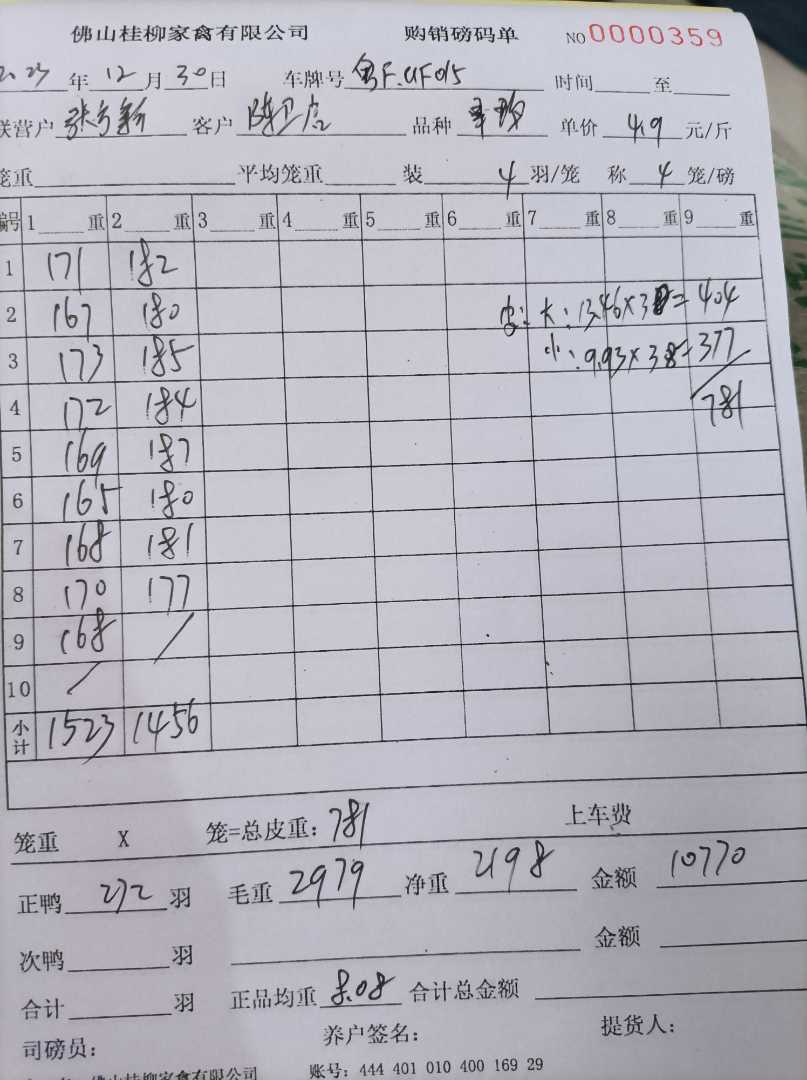 佛山桂柳家禽有限公司 购销磅码单 NO 0000359
2023年12月30日 车牌号 粤F.UF015 时间 至
联营户 客户 陈卫 品种 单价 4.9 元/斤
笼重 平均笼重 装 4 羽/笼 称 4 笼/磅
编号 1 重 2 重 3 重 4 重 5 重 6 重 7 重 8 重 9 重
1 171 182
2 167 180 皮: 大: 13.46×30=404
3 173 185 小: 9.93×38=377
4 172 184 781
5 169 187
6 165 180
7 168 181
8 170 177
9 168 /
10 /
小计 1523 1456
笼重 X 笼=总皮重: 781 上车费
正鸭 272 羽 毛重 2979 净重 2198 金额 10770
次鸭 羽 金额
合计 羽 正品均重 8.08 合计总金额
司磅员: 养户签名: 提货人:
佛山桂柳家禽有限公司 账号: 444 401 010 400 169 29